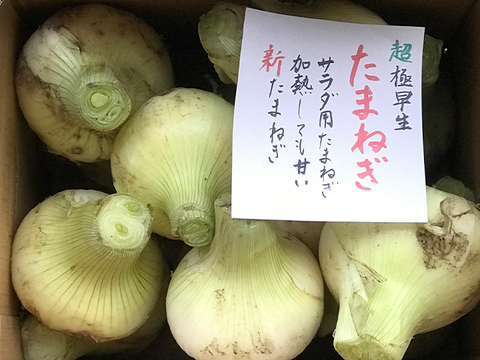 超極早生
たまねぎ
サラダ用たまねぎ
加熱しても甘い
新たまねぎ